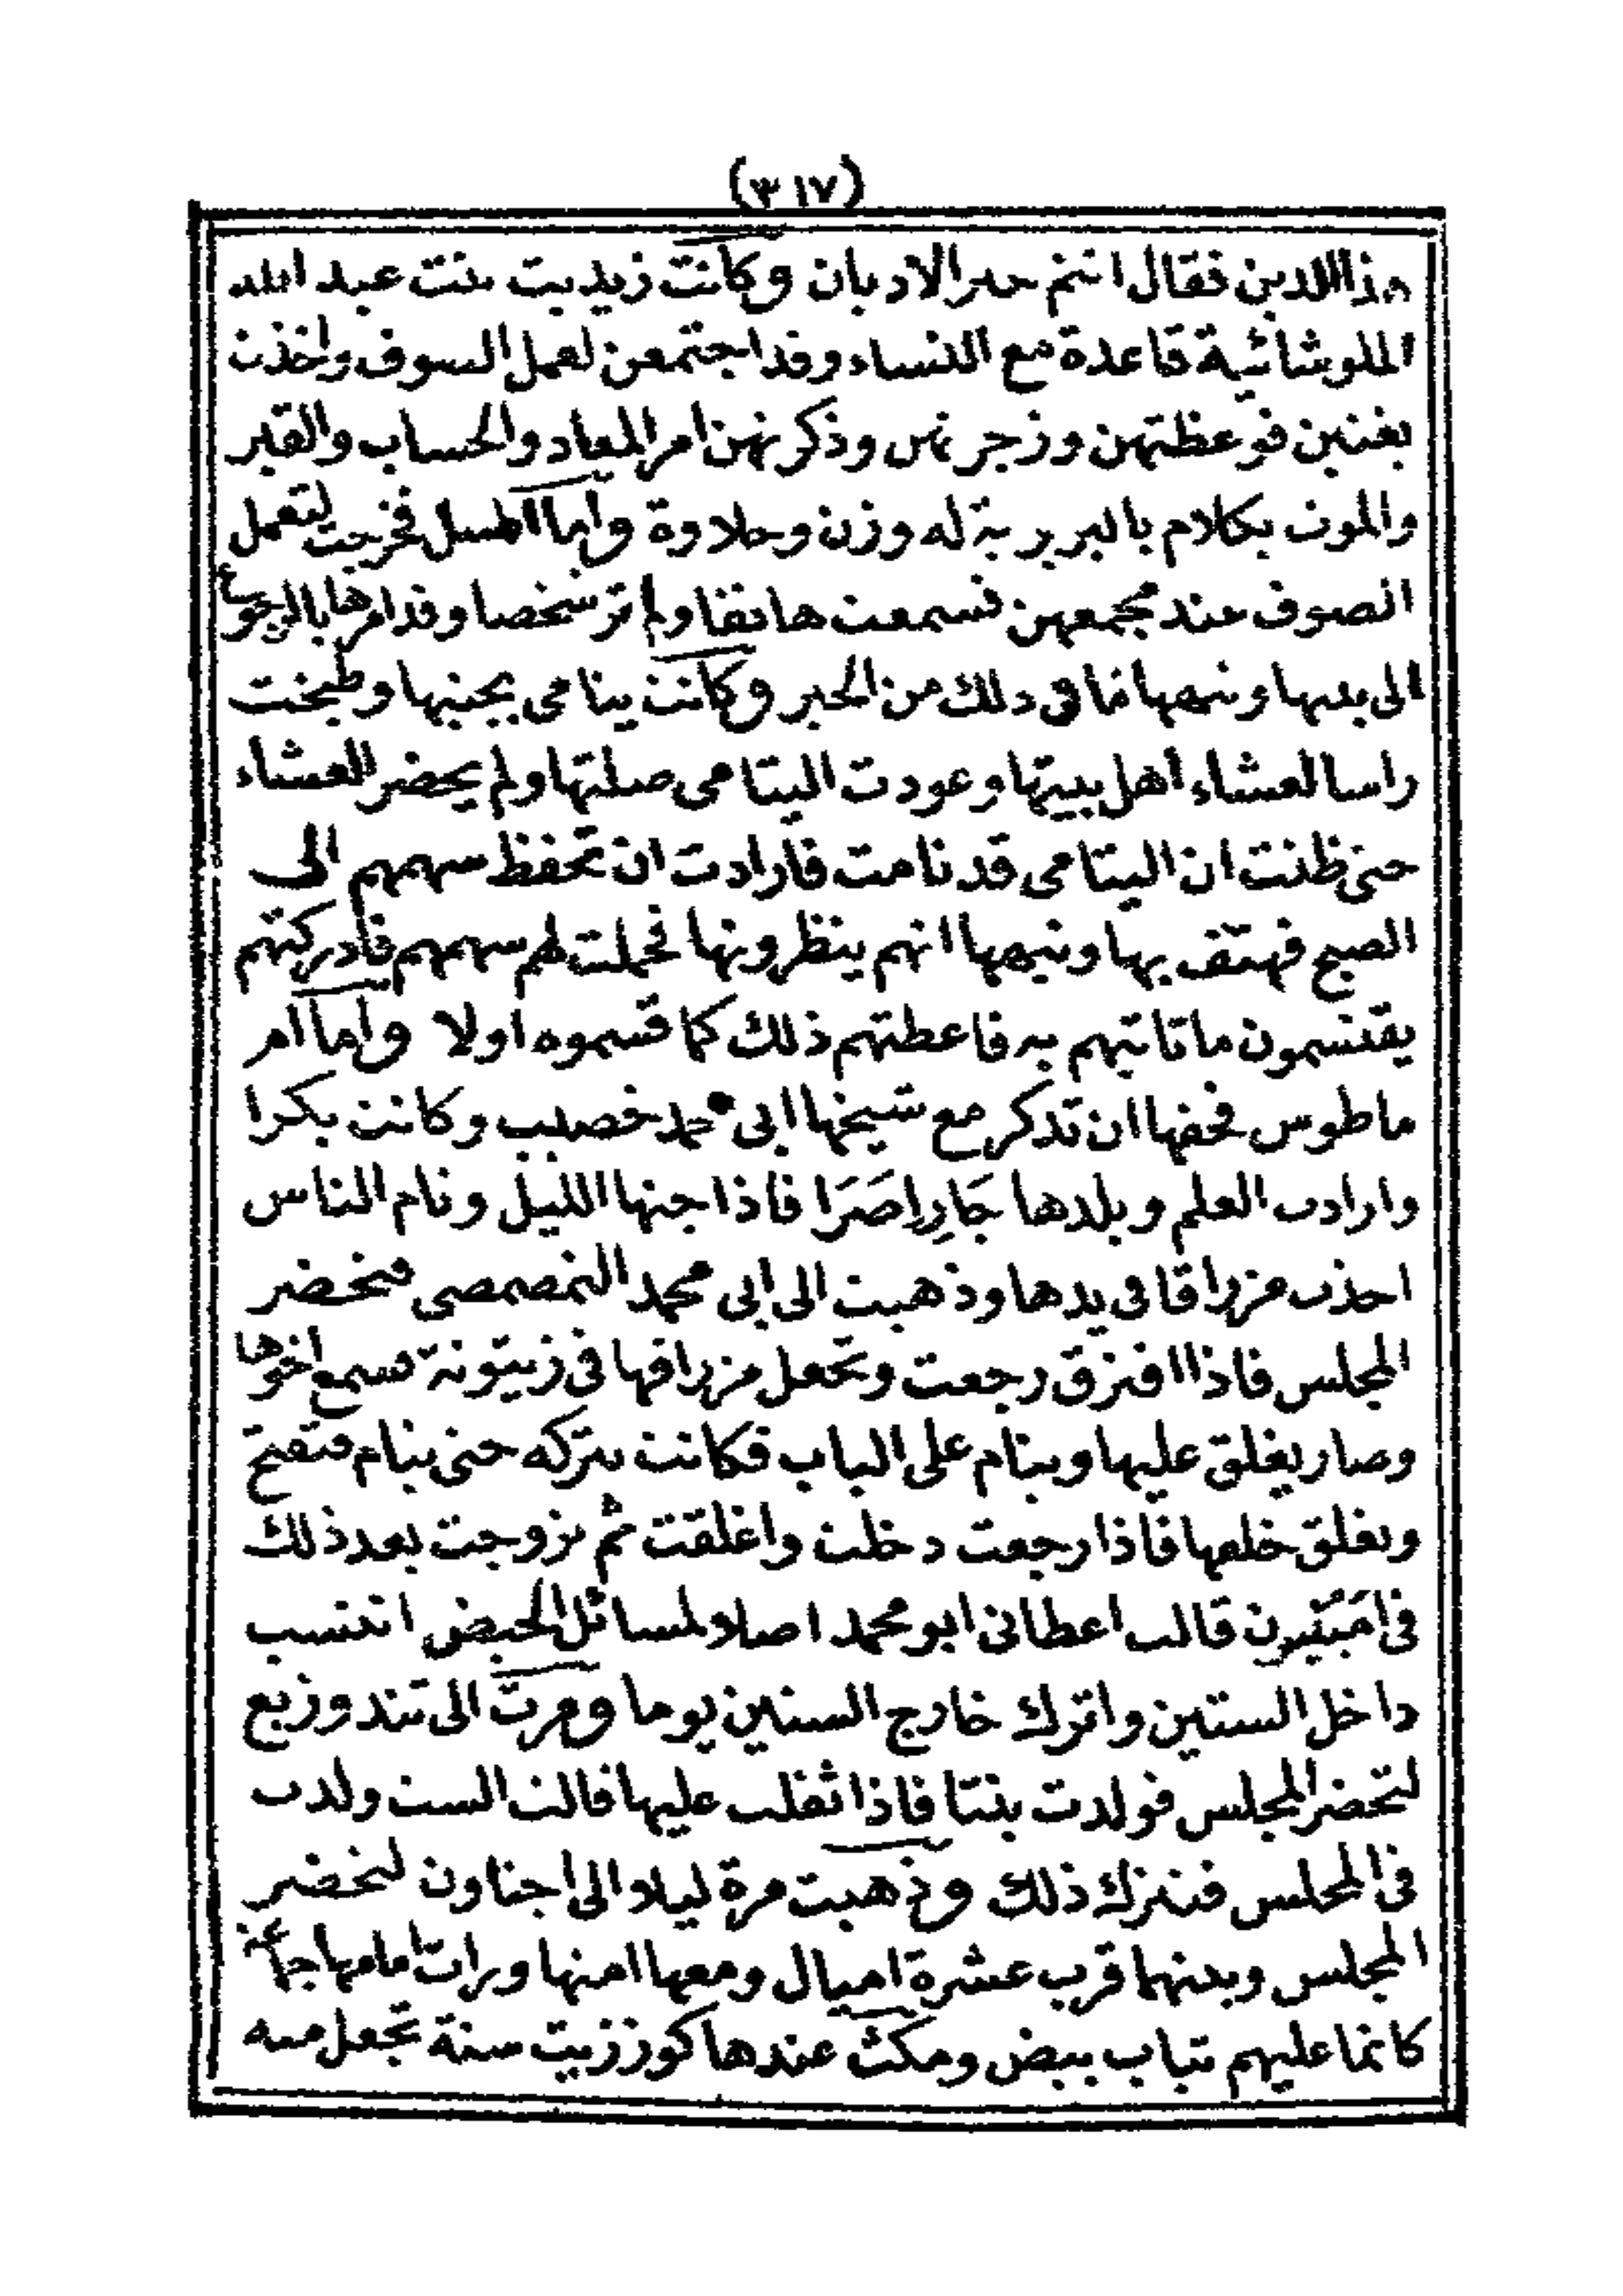 (٣١٧)
هذا الدين فقال انتم خير الاديان وكانت زيديت بنت عبد الله
الملوشائية قاعدة مع النساء وقد اجتمعن لعمل الصوف واخذن
يغنين فوعظتهن وزجرتهن وذكرتهن امر المعاد والحساب والقبر
والموت بكلام بالبربرية له وزن وحلاوة واما فخرجت لتعمل
الصوف عند مجمعهن فسمعت هاتفا ولم تر شخصا وقد امرها بالرجوع
الى بيتها ونبهها فا فى ذلك من الخير وكانت يتامى بجنبها وطبخت
راسا لعشاء اهل بيتها وعودت اليتامى صلتها ولم يحضر العشاء
حتى ظنت ان اليتامى قد نامت فارادت ان تحفظ سهمهم الى
الصبح فهتف بها ونبهها انهم ينظرونها فحملت لهم سهمهم فادركتهم
يقتسمون ما تاتيهم به فاعطتهم ذلك كما قسموه اولا واما ام
ماطوس فحقها ان تذكر مع شيخها ابى محمد خصيب وكانت بكرا
وارادت العلم وبلدها جَارِاصَرَا فاذا جنها الليل ونام الناس
اخذت مزراقا فى يدها وذهبت الى ابى محمد التمصمصى فتحضر
المجلس فاذا افترق رجعت وتجعل مزراقها فى زيتونة فسمع اخوها
وصار يغلق عليها وينام على الباب فكانت تتركه حتى ينام فتفتح
وتغلق خلفها فاذا رجعت دخلت واغلقت ثم تزوجت بعد ذلك
فى قالت اعطانى ابو محمد اصلا لمسائل الحيض انتسب
داخل الستين واترك خارج الستين يوما ومرت الى تندوزيغ
لتحضر المجلس فولدت بنتا فاذا ثقلت عليها قالت الست ولدت
فى المجلس فتترك ذلك وذهبت مرة ليلا الى اجناون لتحضر
المجلس وبينهما قرب عشرة اميال ومعها امتها ورات امامها جماعة
كانما عليهم ثياب بيض ومكث عندها كوز زيت سنة تجعل منه